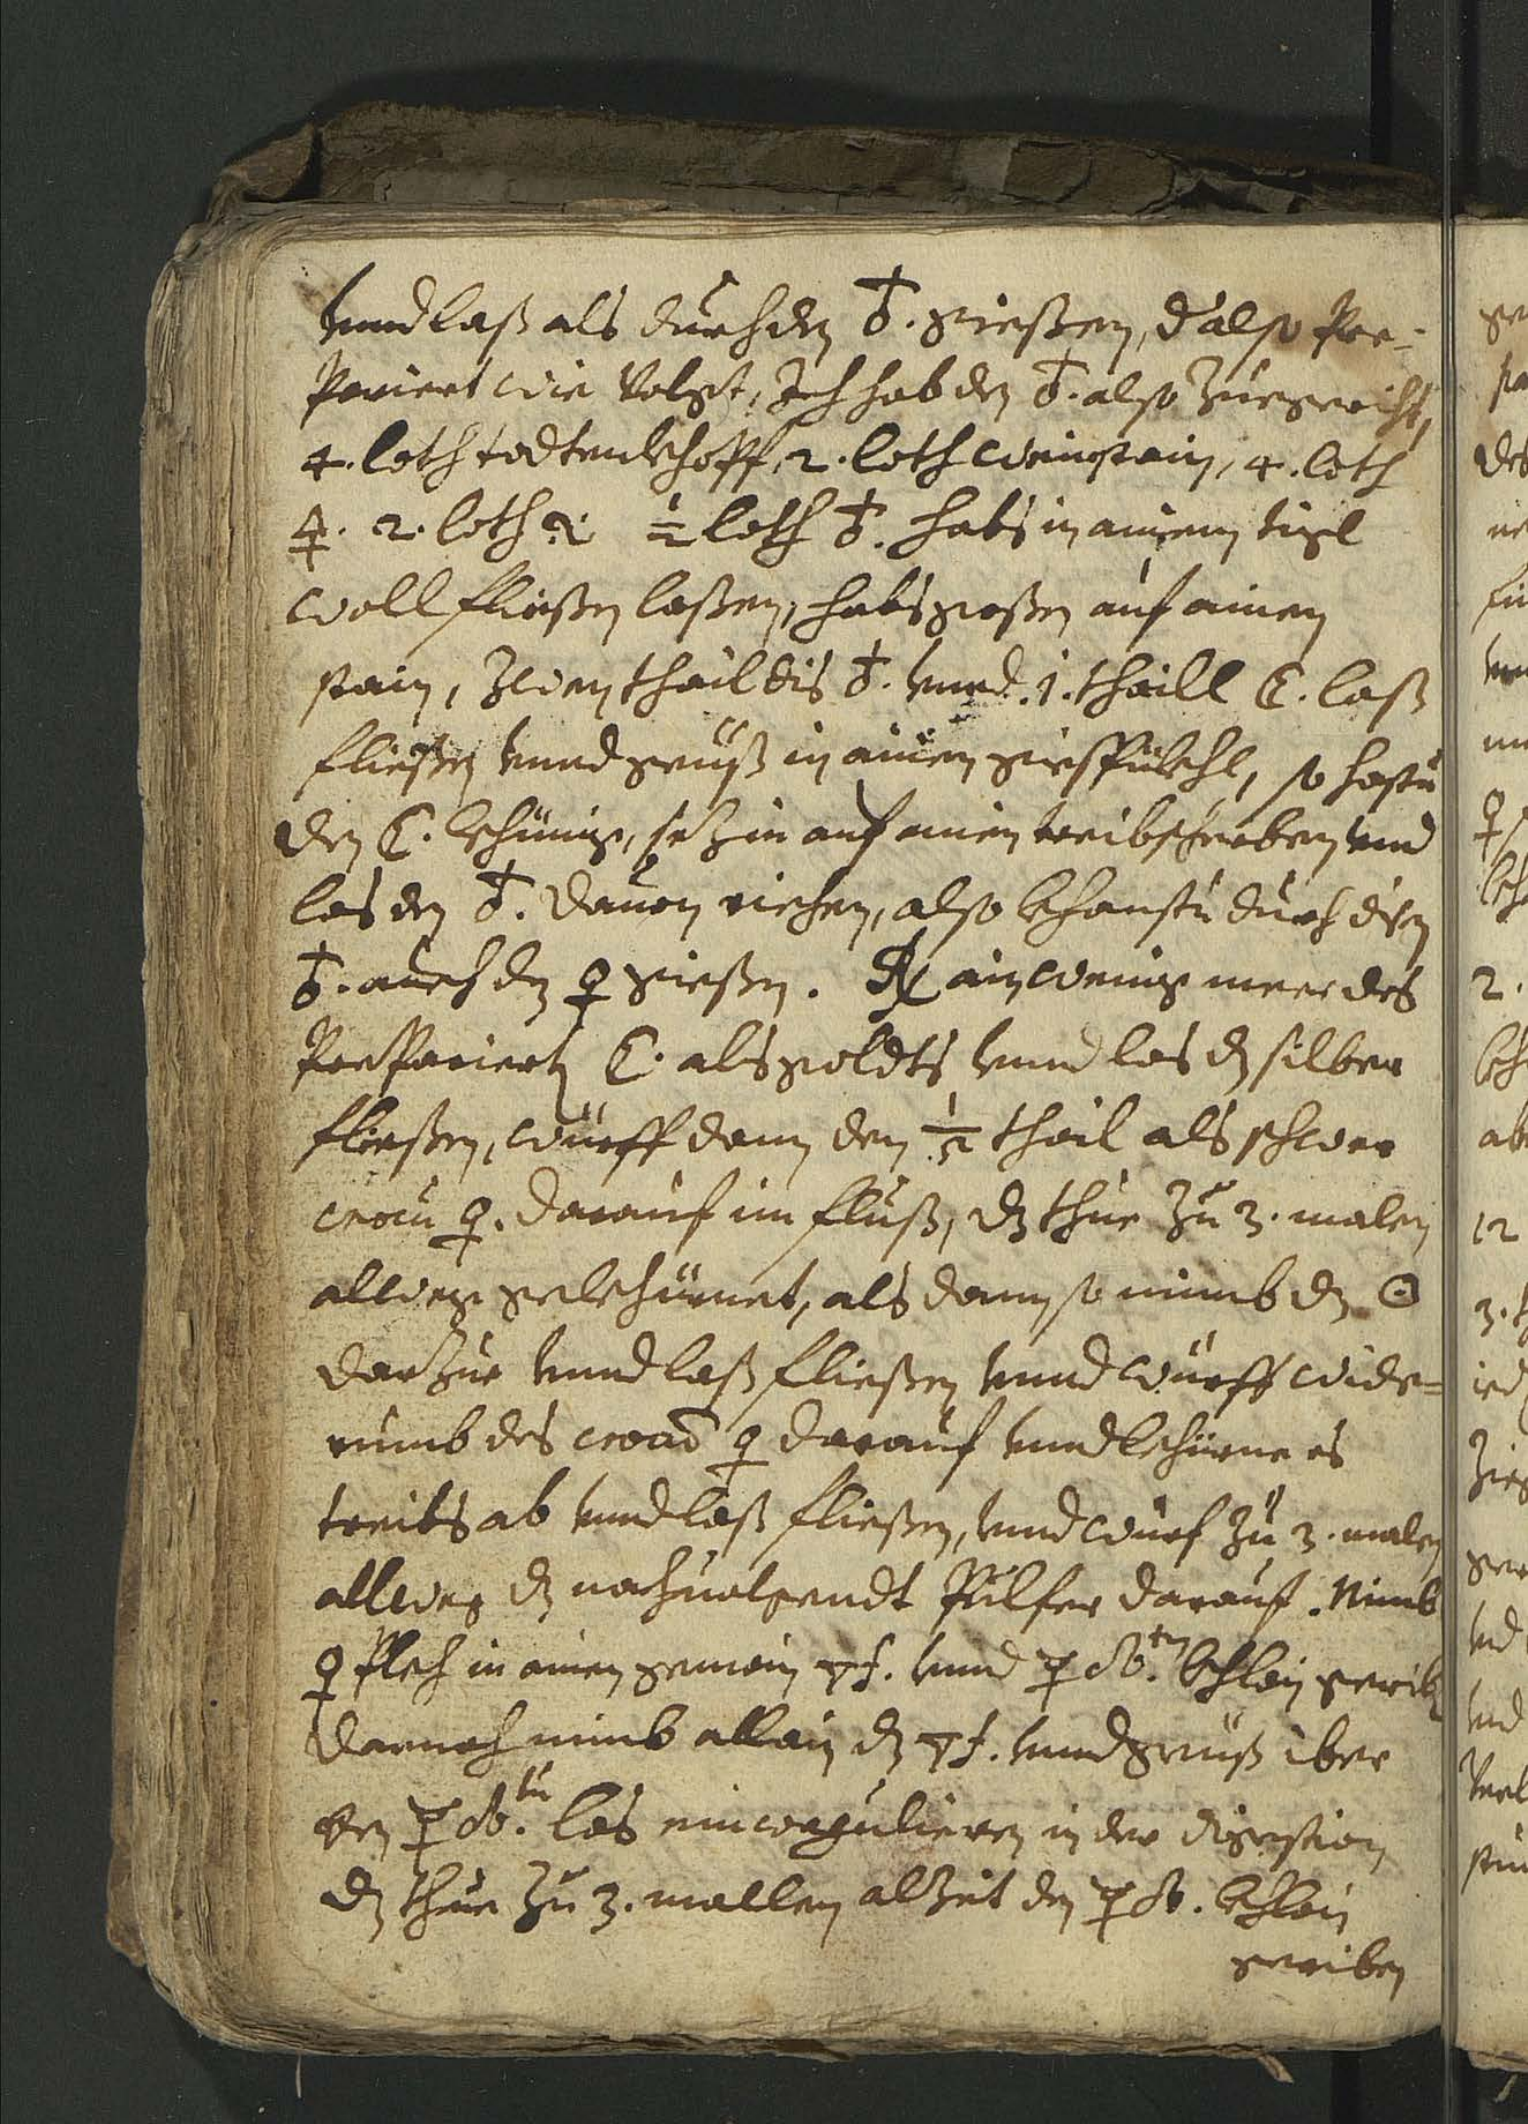 vnnd laß als durch den ♁. giessen, d' also Pre-
Pariert wie Volgt, Ich hab den ♁. also Zuegericht,
4. loth todtenkhopff, 2. loth weinstain, 4. loth
🜍. 2. loth ½ loth ♁. habs in ainem tigl
woll fliessen lassen, habs gossen auf ainen
stain, Zwen thail dis ♁. vnnd .1. thaill ☾. laß
fliessen vnnd geuß in ainen giespukhl, so hastu
den ☾. khünig, setz in auf ainen treibscherben vnd
las den ♁. dauon riechen, also khanstu durch disen
♁. auch den ♀ giessen. ℞ ain wenig meer des
PrePariertn ☾. als goldts vnnd las dz silber
fliessen, würff dann den ½ thail als schwer
croci ♀. darauf im fluß, dz thue Zu 3. malen
allweg gekhürnet, als dann so nimb dz ☉
darZue vnnd laß fliessen vnnd würff wide=
rumb des croci ♀ darauf vnnd khürne es
treibs ab vnnd laß fliessen, vnnd wurf Zu 3. malen
allweg dz nachuolgendt Pulfer darauf. Nimb
♀ Plech in ainen gemain vnnd khlain gerib
darnach nimb allain dz vnnd geuß iber
den las ein coagulieren in der digestion
dz thue Zu 3. mallen alZeit den khlain
geriben